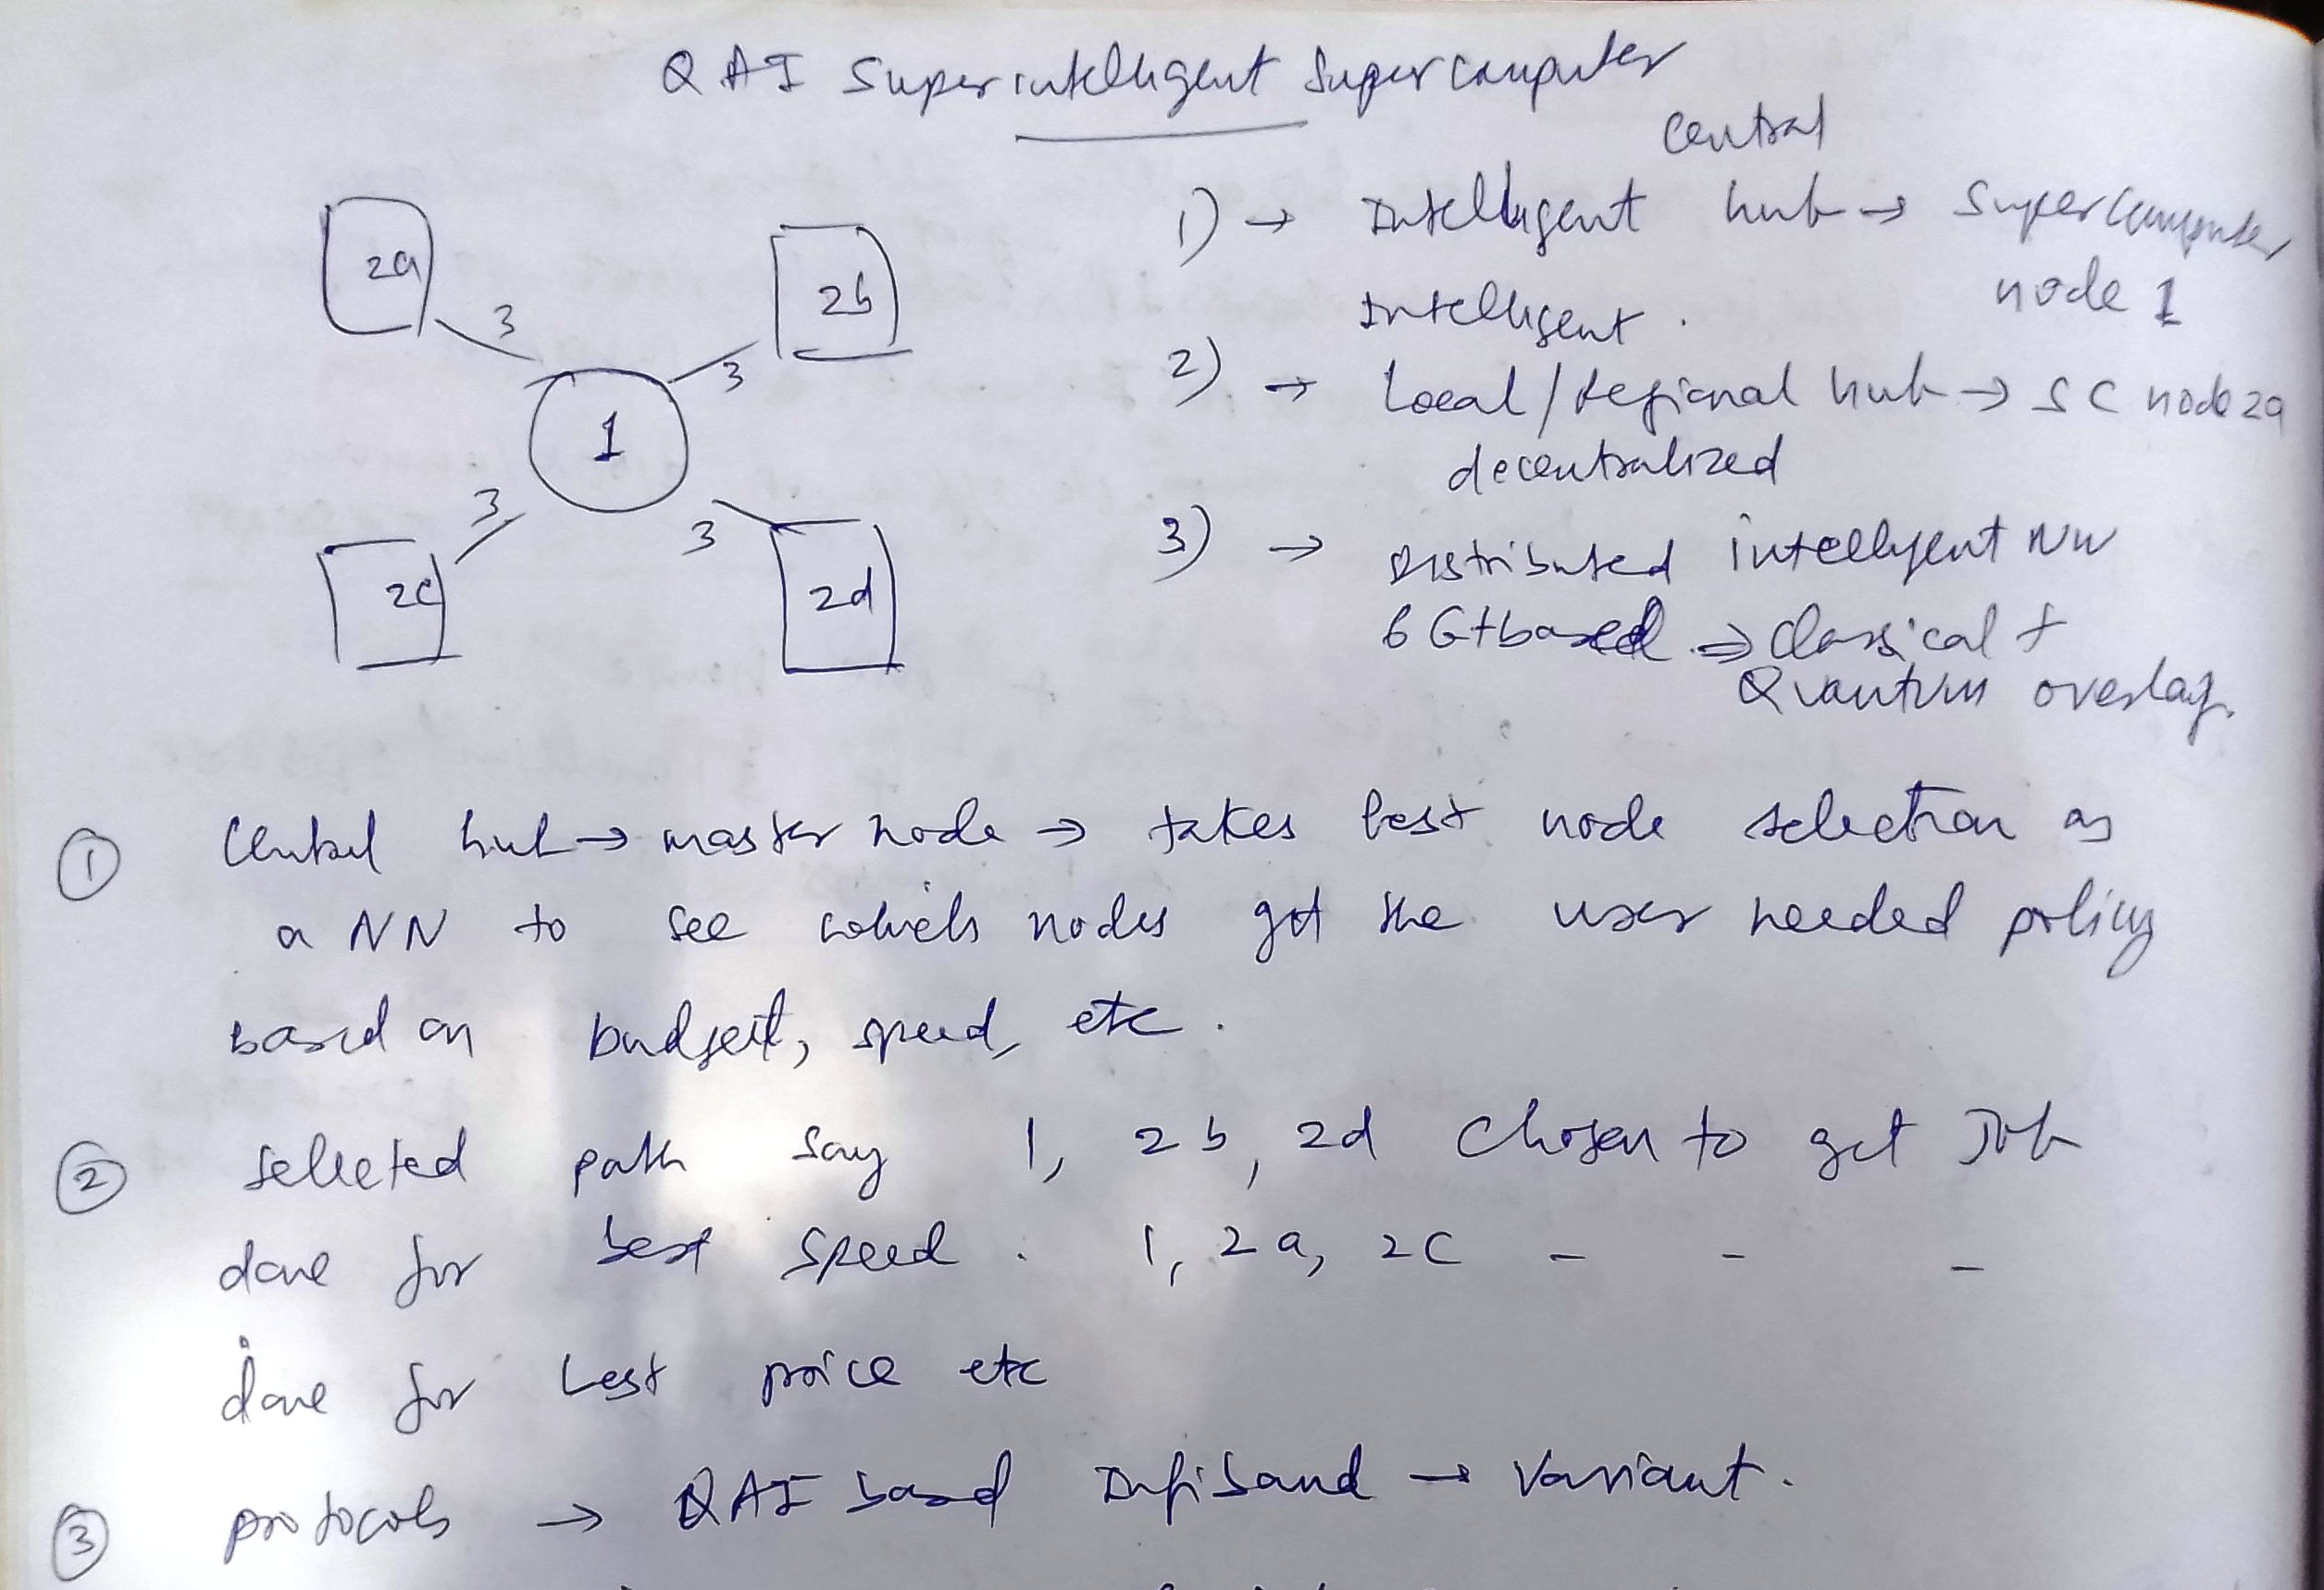 QAI Superintelligent Supercomputer
2a
2b
1
3
3
3
3
2c
2d
central
1) → Intelligent hub → Supercomputer
node 1
Intelligent.
2) → Local/regional hub → SC node 2a
decentralized
3) → Distributed intelligent NW
6G+ based ⇒ classical +
Quantum overlay.
① Central hub → master node → takes best node selection as
a NN to see which nodes got the user needed policy
based on budget, speed, etc.
② selected path say 1, 2b, 2d chosen to get job
done for best speed. 1, 2a, 2c - - -
done for best price etc
③ protocols → QAI based Infiband → variant.